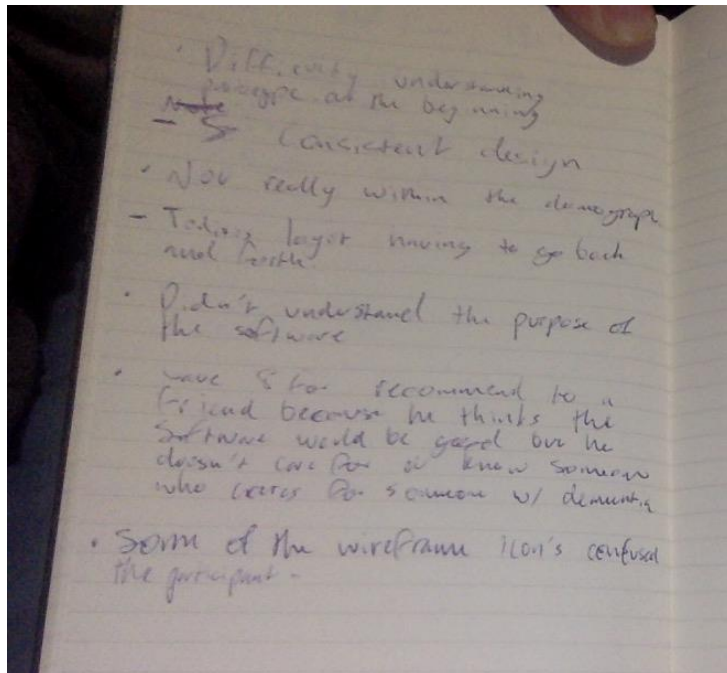 · Difficulty understanding
prototype at the beginning
- 5 Consistent design
· Not really within the demograph
- Tedious layout having to go back
and forth
· Didn't understand the purpose of
the software
· Gave 8 for recommend to a
friend because he thinks the
software would be good but he
doesn't care for or know someone
who cares for someone w/ dementia
· Some of the wireframe icon's confused
the participant.